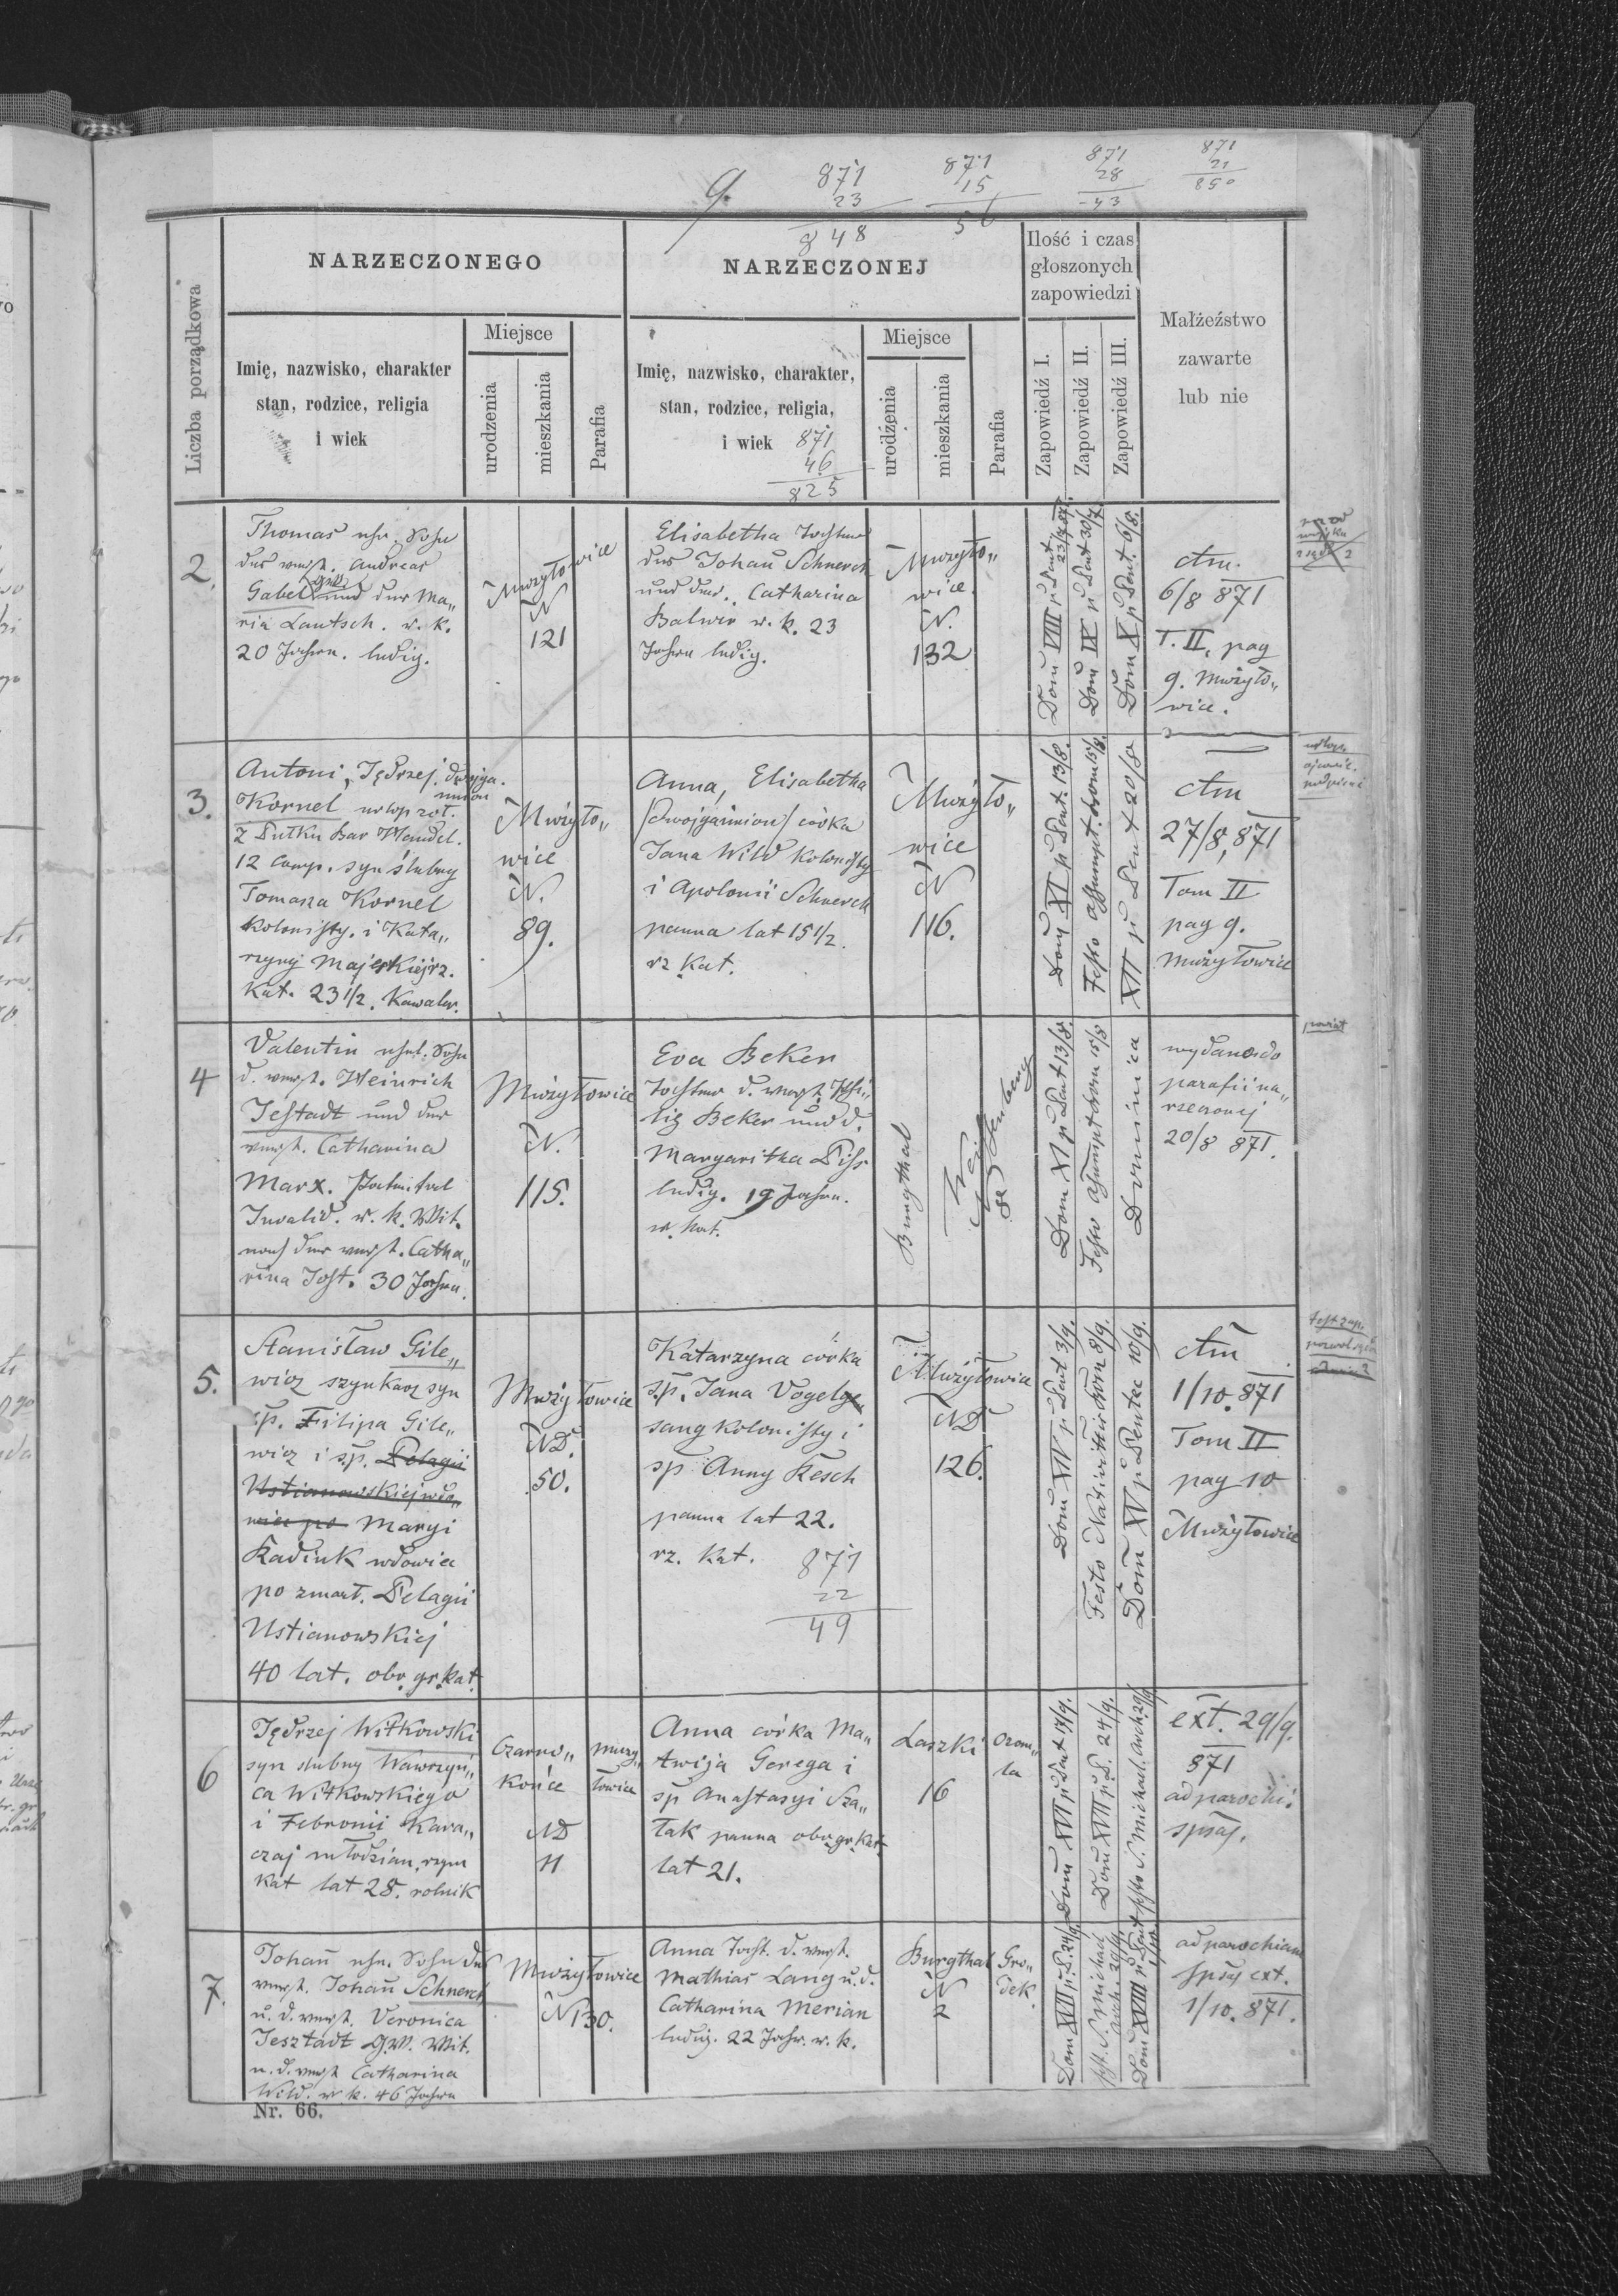 9.
871
23
848
871
15
56
871
28
-43
871
21
850
Liczba porządkowa
NARZECZONEGO
NARZECZONEJ
Ilość i czas
głoszonych
zapowiedzi
Małżeźstwo
zawarte
lub nie
Imię, nazwisko, charakter
stan, rodzice, religia
i wiek
Miejsce
urodzenia
mieszkania
Parafia
Imię, nazwisko, charakter,
stan, rodzice, religia,
i wiek
871
46
825
Miejsce
urodżenia
mieszkania
Parafia
Zapowiedź I.
Zapowiedź II.
Zapowiedź III.
2.
Thomas ehr. Sohn
des verst. Andreas
Gabel und der Ma„
ria Lautsch. r. k.
20 Jahre. ledig.
Mużyłowice
N
121
Elisabetha Tochter
des Johañ Schnerch
und der. Catharina
Balwir r. k. 23
Jahre ledig.
Mużyło„
wice.
N.
132
Dom VIII p Pent 23/7 871.
Dom IX p Pent 30/7.
Dom X p Pent. 6/8.
ctm.
6/8 871
T. II, pag
9. Mużyło„
wice.
3.
Antoni, Jędrzej dwojga
imion
Kornel urlop żoł.
z Pułku Bar Handel.
12 Comp. syn ślubny
Tomasza Kornel
kolonisty. i Kata„
rzyny Majerskiéj rz.
Kat. 23 1/2. Kawaler.
Mużyło„
wice
N.
89.
Anna, Elisabetha
/dwojga imion/ córka
Jana Wild kolonisty
i Apolonii Schnerch
panna lat 15 1/2.
rz Kat.
Mużyło„
wice
N
116.
Dom XI p Pent. 13/8.
Festo Assumpt. Dom 15/8.
XII p Pent 20/8
ctm
27/8, 871
Tom II
pag 9.
Mużyłowice
4
Valentin ehel. Sohn
d. verst. Heinrich
Jestadt und der
verst. Catharina
Marx. Patental
Invalid. r. k. Wit.
nach der verst. Catha„
rina Jost. 30 Jahre.
Mużyłowice
N.
115.
Eva Beker
Tochter d. verst. Phi„
lip Beker und d.
Margaritha Piss
ledig. 19 Jahre.
r. kat.
Burgthal
Dom. XI p Pent 13/8.
Festo Assumpt Dom 15/8
Dominica
wydano do
parafii na„
rzeczonej
20/8 871.
5.
Stanisław Gile„
wicz szynkarz syn
śp. Filipa Gile„
wicz i s.p. Pelagii
Ustianowskiej wdo„
wiec po Maryi
Kadiuk wdowiec
po zmarł. Pelagii
Ustianowskiej
40 lat. obr. gr. kat.
Mużyłowice
ND.
50.
Katarzyna córka
s.p. Jana Vogelge
sang kolonisty i
sp Anny Resch
panna lat 22.
rz. Kat.
871
22
49
Mużyłowice
ND
126.
Dom XIV p Pent 3/9.
Festo Nativitatis Dom 8/9.
Dom XV p Pentec 10/9.
ctm
1/10. 871
Tom II
pag 10
Mużyłowice
6
Jędrzej Witkowski
syn ślubny Wawrzyń„
ca Witkowskiego
i Febronii Kara„
czaj młodzian, rzym
kat lat 28. rolnik
Czarno„
końce
ND
11
Muży„
łowice
Anna córka Ma„
twija Gerega i
sp Anastasyi Sza„
łak panna obr gr. Kat.
lat 21.
Laszki
16
Dom XVI p Pent 17/9.
Dom XVII p P. 24/9.
festo S. Michael. Arch 29/9
ext. 29/9.
871
ad parochi.
spsaj.
7.
Johañ ehr. Sohn des
verst. Johañ Schnerch
u. d. verst. Veronica
Jesztadt G.W. Wit.
n. d. verst Catharina
Wild. r k. 46 Jahre
Mużyłowice
N 130.
Anna Tocht. d. verst.
Mathias Lang u. d.
Catharina Merian
ledig. 22 Jahr. r. k.
Burgthal
N
2
Gro„
dek.
Dom XVII p P. 24/9.
fst. S. Michael
Arch. 29/9.
Dom XVIII p Pent 1/10.
ad parochiam
spsæ ext.
1/10. 871.
Nr. 66.